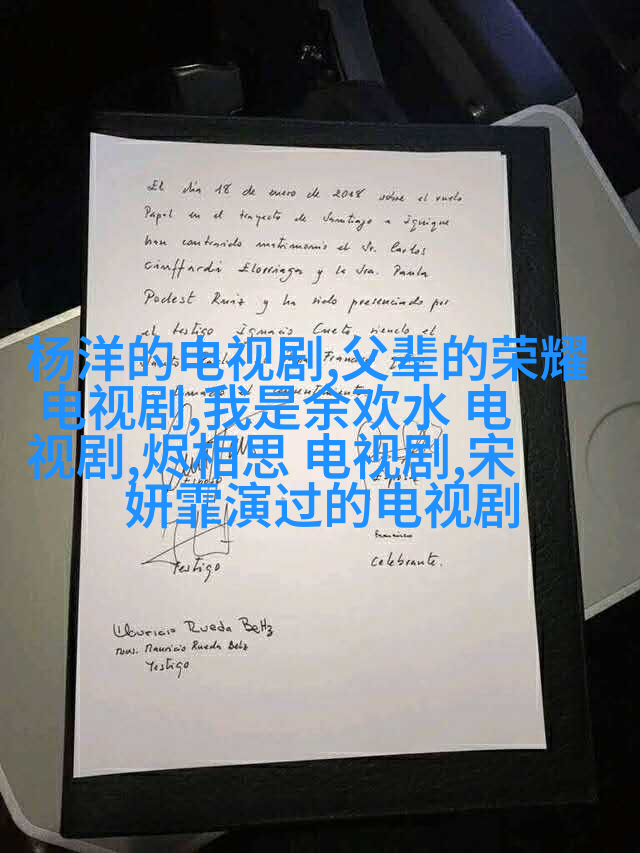 El día 18 de enero de 2018 sobre el vuelo
Papal en el trayecto de Santiago a Iquique
han contraido matrimonio el Sr. Carlos
Ciuffardi Elorriaga y la Sra. Paula
Podest Ruiz y ha sido presenciado por
el testigo Ignacio Cueto, siendo el
杨洋的电视剧,父辈的荣耀
电视剧,我是余欢水 电
视剧,烬相思 电视剧,宋
妍霏演过的电视剧
Esposo
Testigo
Francisco
Celebrante.
Mauricio Rueda Beltz
Mons. Mauricio Rueda Beltz
Testigo